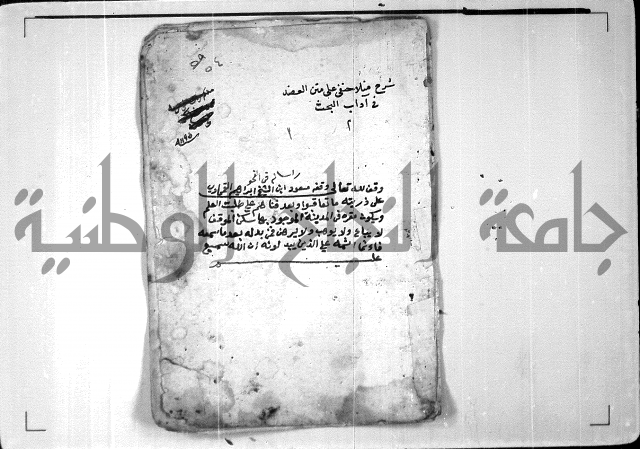 شرح منلا حنفي على متن العضد
في آداب البحث
٢
رسالة في النحو
وقف لله تعالى وقفه مسعود ابن الشيخ ابراهيم
على ذريته ما تعاقبوا وبعد فناهم على طلبت العلم
ويكون مقره في المدينة الموجود بها الموقف
لا يباع ولا يوهب ولا يرهن فمن بدله بعد ما سمعه
فانما اثمه على الذين يبدلونه ان الله سميع
عليم
جامعة النجاح الوطنية